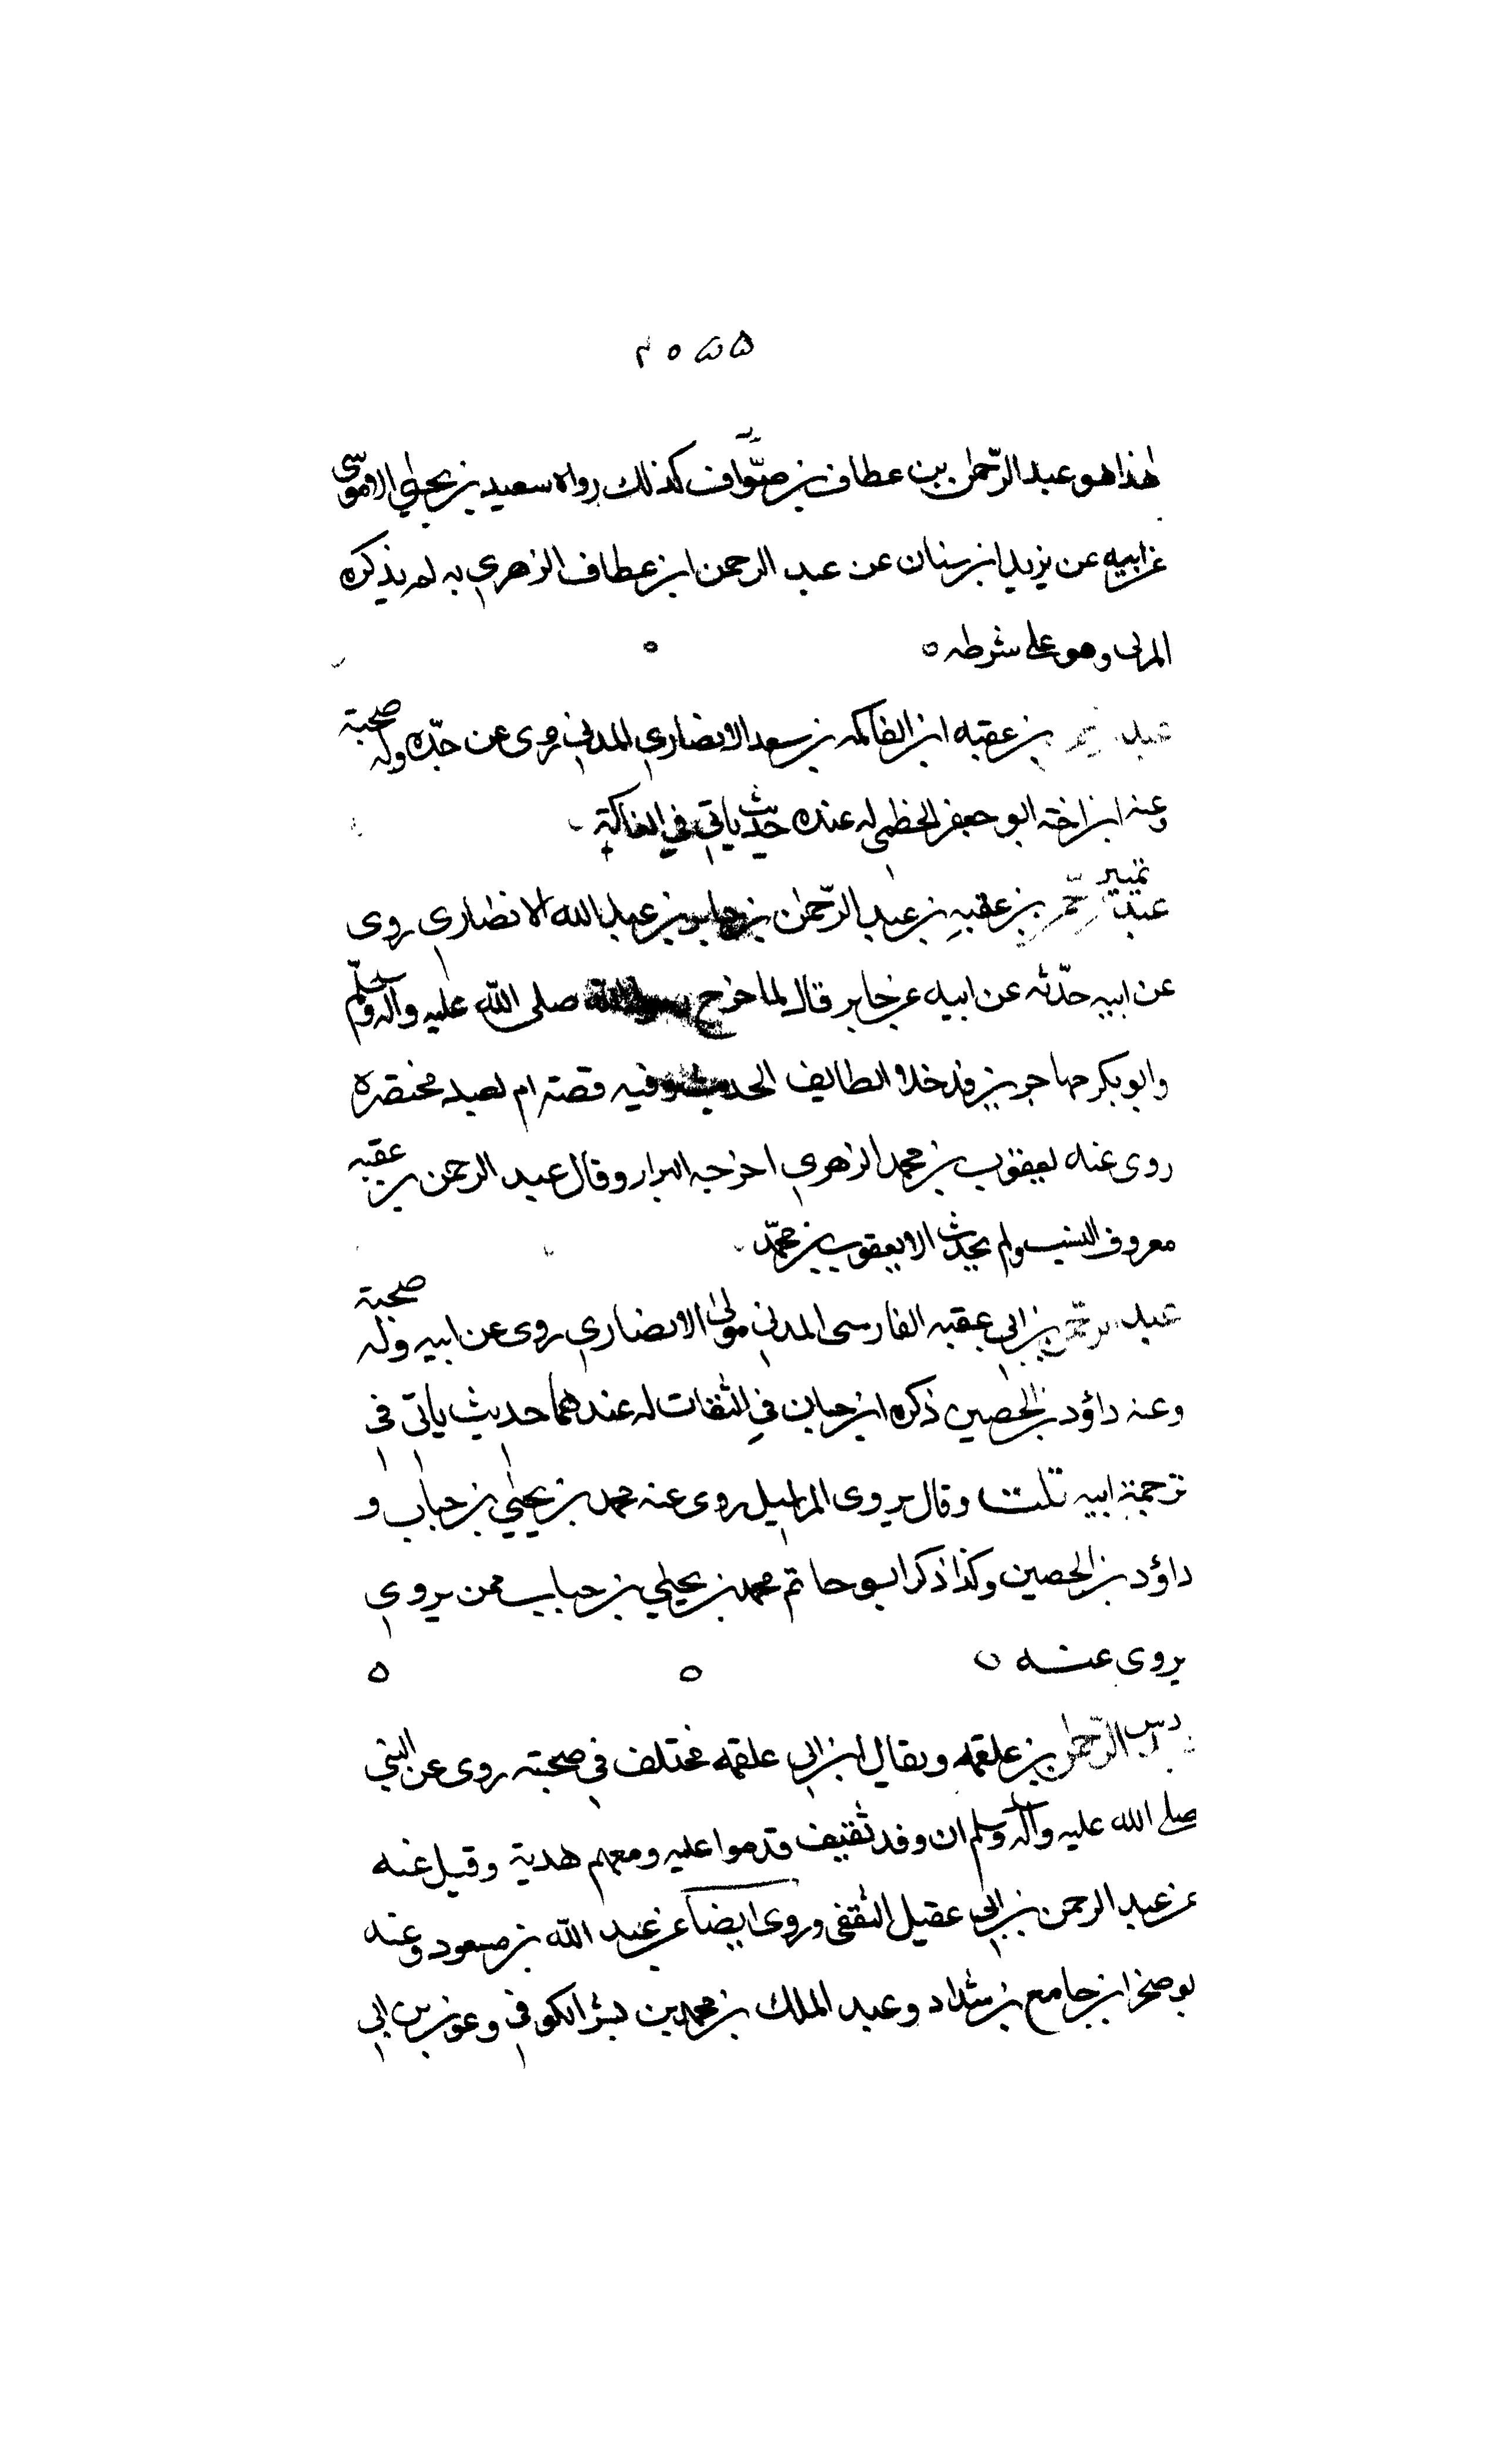 هذا هو عبد الرّحمٰن بن عطاف بن صفّواف كذلك رواه سعيد بن يحيٰي الاموي
عن ابيه عن يزيد ابن سنان عن عبد الرحمن ابن عطاف الزهري به لم يذكره
المزي وهو على شرطه ٥
عبد بن عقبه ابن الفاكه بن سعد الانصاري المدني روى عن جدّه وله صحبة
وعنه ابن اخته ابو جعفر الخطمي له عنده حديث ياتي في الفاكة
تمييز
عبد الرحمن بن عقبه بن عبد الرّحمٰن بن جابر بن عبد الله الانصاري روى
عن ابيه حدّثه عن ابيه عن جابر قال لما خرج رسول الله صلى الله عليه وآله وسلّم
وابو بكر مهاجرين فدخلا الطايف الحديث وفيه قصة ام معبد مختصره
روى عنه يعقوب بن محمد الزهري اخرجه البزار وقال عبد الرحمن بن عقبه
معروف النسب ولم يحدث الا يعقوب بن محمّد
عبد الرحمن بن ابي عقبه الفارسى المدني مولىٰ الانصاري روى عن ابيه وله صحبة
وعنه داؤد بن الحصين ذكره ابن حبان في الثقات له عندهما حديث ياتى فى
ترجمة ابيه قلت وقال يروى المراسيل روى عنه محمد بن يحيٰي بن حباب و
داؤد بن الحصين وكذا ذكر ابو حاتم محمد بن يحيٰي بن حباب ممن يروي
يروى عنه ٥ ٥ ٥
الرّحمٰن بن علقمه ويقال ابن ابي علقمه مختلف في صحبته روى عن النبي
صلى الله عليه وآله وسلم ان وفد ثقيف قدموا عليه ومعهم هدية وقيل عنه
عن عبد الرحمن بن ابي عقيل الثقفى وروى ايضا عن عبد الله بن مسعود وعنه
بو صخر ابن جامع بن شداد وعبد الملك بن محمد بن بشر الكوفي وعون بن ابي